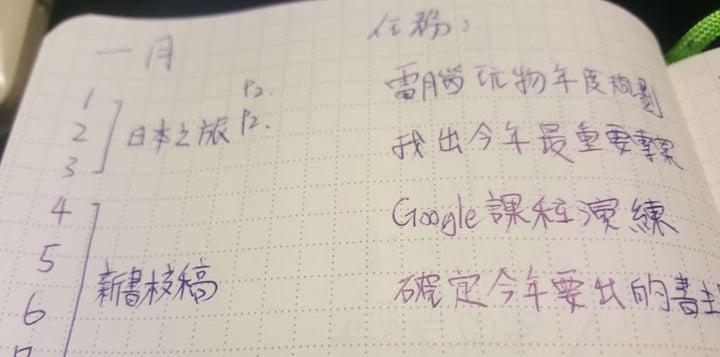 一月
任務:
1
2
3
日本之旅
P2.
P2.
4
5
6
7
新書校稿
電腦玩物年度規劃
找出今年最重要專案
Google課程演練
確定今年要出的書主